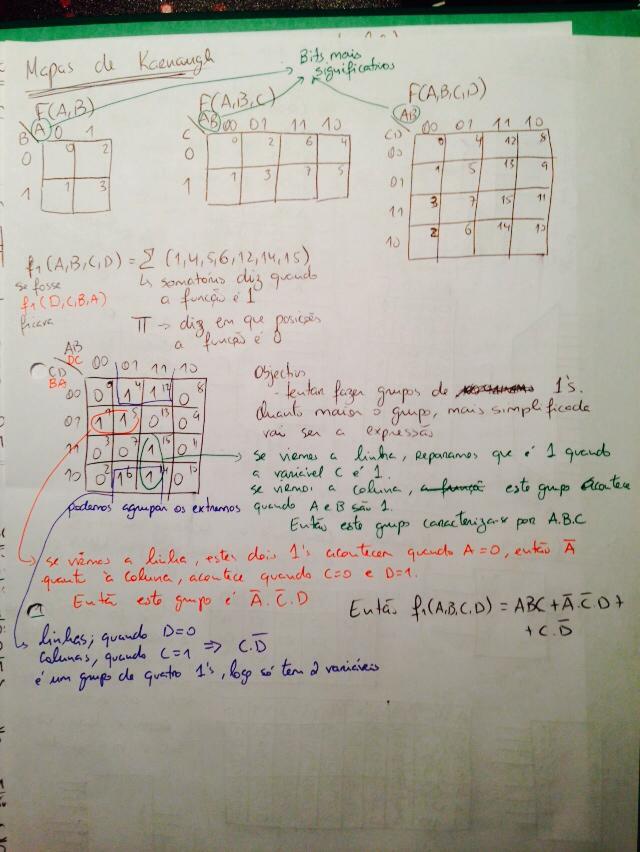 Mapas de Karnaugh
Bits mais
significativos
F(A,B)
F(A,B,C)
F(A,B,C,D)
B A 0 1
0 0 2
1 1 3
C AB 00 01 11 10
0 0 2 6 4
1 1 3 7 5
CD AB 00 01 11 10
00 0 4 12 8
01 1 5 13 9
11 3 7 15 11
10 2 6 14 10
f1(A,B,C,D) = Σ (1,4,5,6,12,14,15)
se fosse
f1(D,C,B,A)
ficava
↳ somatório diz quando
a função é 1
Π → diz em que posições
a função é 0
AB
DC
CD
BA
00 01 11 10
00 0 0 1 4 1 12 0 8
01 1 1 1 5 0 13 0 9
11 0 3 0 7 1 15 0 11
10 0 2 1 6 1 14 0 10
podemos agrupar os extremos
Objectivo
- tentar fazer grupos de 1's.
Quanto maior o grupo, mais simplificada
vai ser a expressão
se virmos a linha, reparamos que é 1 quando
a variável C é 1.
se virmos a coluna, este grupo acontece
quando A e B são 1.
Então este grupo caracteriza-se por A.B.C
se virmos a linha, estes dois 1's acontecem quando A=0, então A̅
quant à coluna, acontece quando C=0 e D=1.
Então este grupo é A̅.C̅.D
Então f1(A,B,C,D) = ABC + A̅.C̅.D +
+ C.D̅
linhas; quando D=0
colunas, quando C=1 ⇒ C.D̅
é um grupo de quatro 1's, logo só tem 2 variáveis